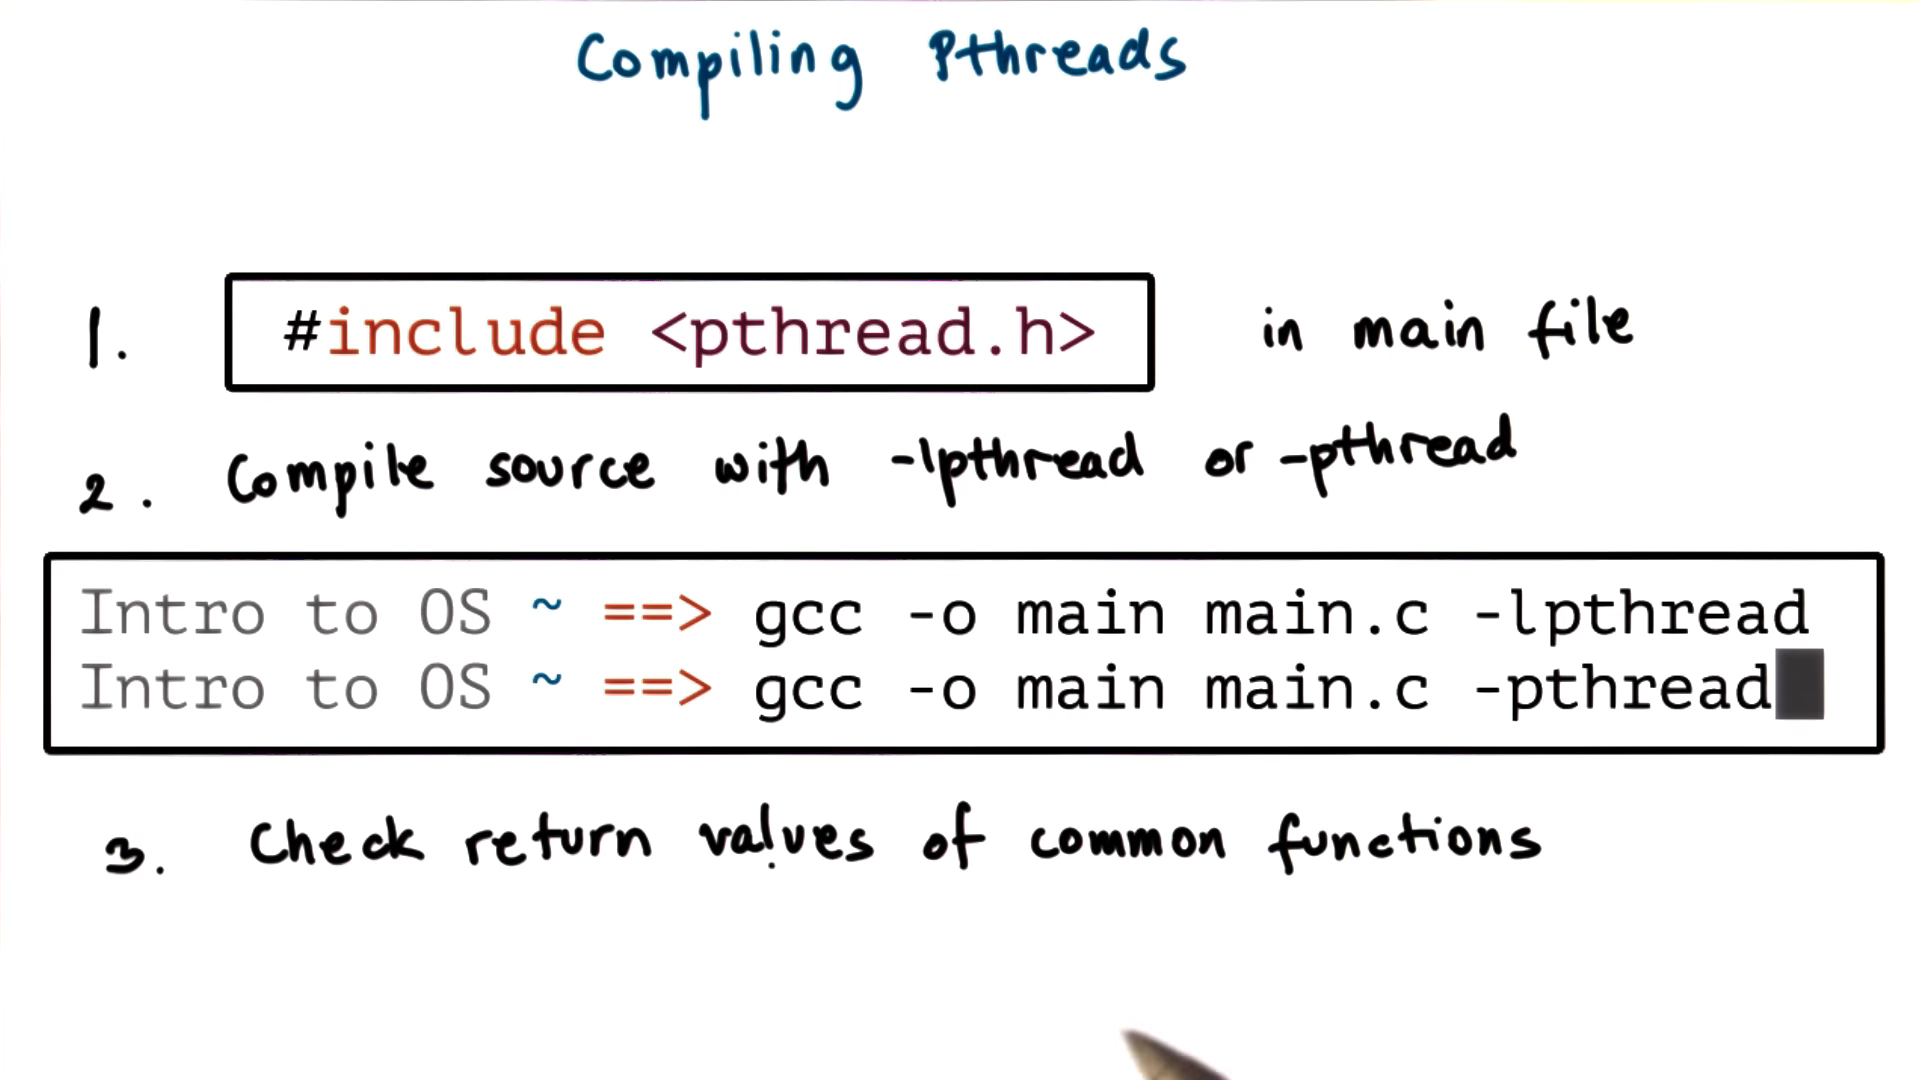 Compiling Pthreads
1. #include <pthread.h> in main file
2. Compile source with -lpthread or -pthread
Intro to OS ~ ==> gcc -o main main.c -lpthread
Intro to OS ~ ==> gcc -o main main.c -pthread
3. Check return values of common functions